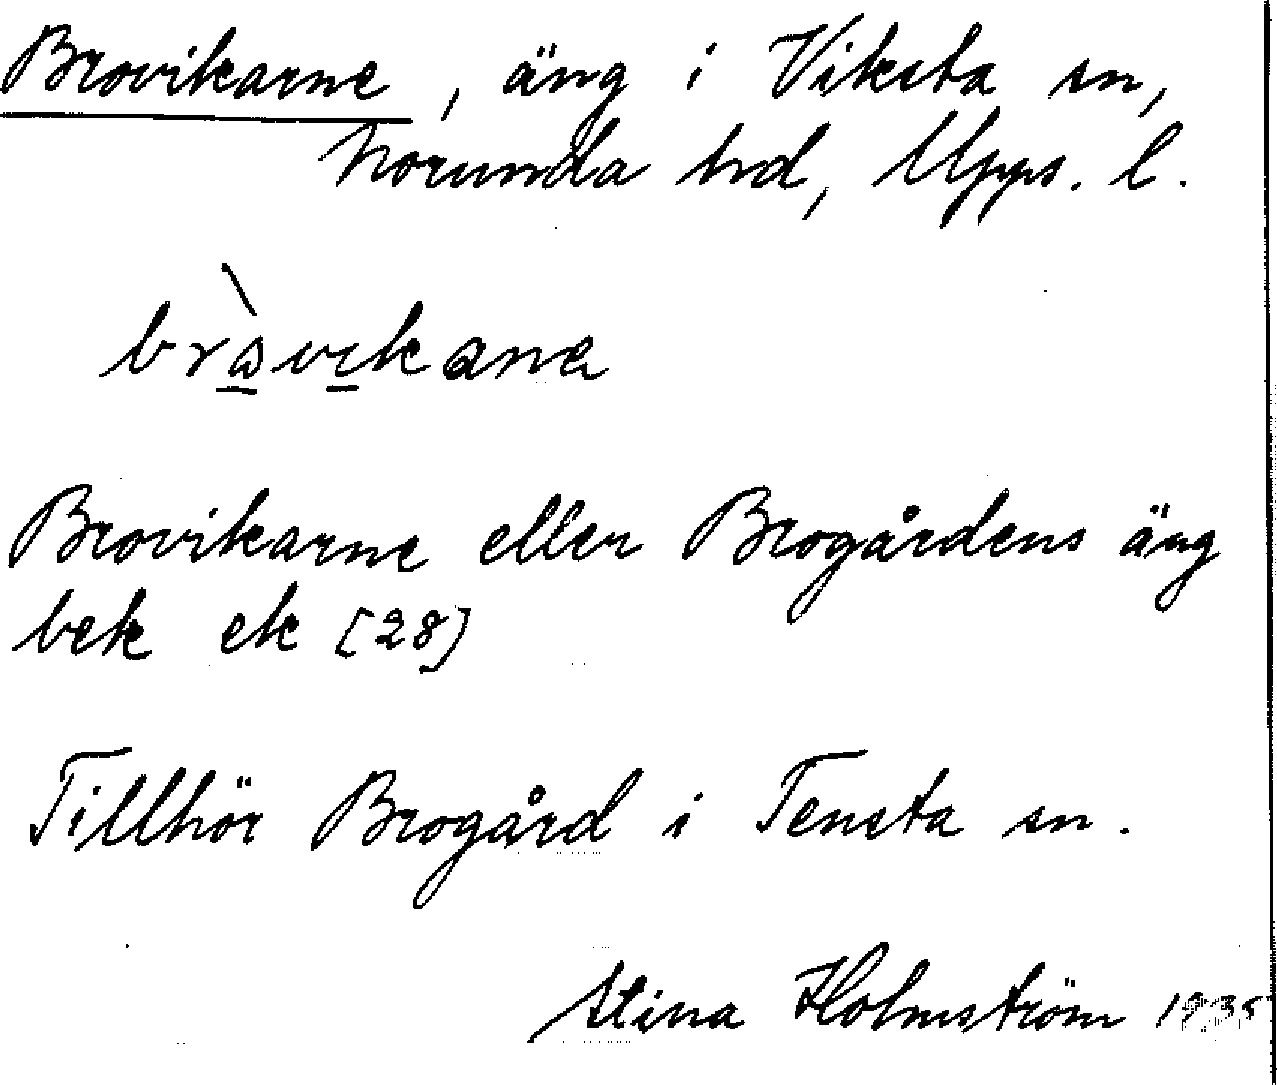 Brovikarne, äng i Viksta sn,
Norunda hd, Upps. l.
bràvikana
Brovikarne eller Brogårdens äng
bek ek [28]
Tillhör Brogård i Tensta sn.
Stina Holmström 1935